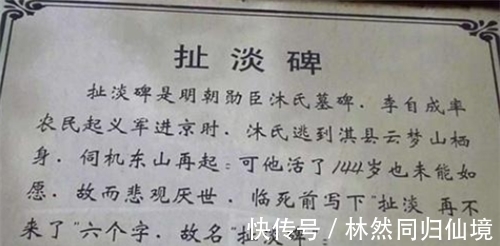 扯淡碑
扯淡碑是明朝勋臣沐氏墓碑．李自成率
农民起义军进京时．沐氏逃到淇县云梦山栖
身．伺机东山再起：可他活了144岁也未能如
愿．故而悲观厌世．临死前写下"扯淡 再不
来了"六个字．故名"扯淡碑：
快传号／林然同归仙境